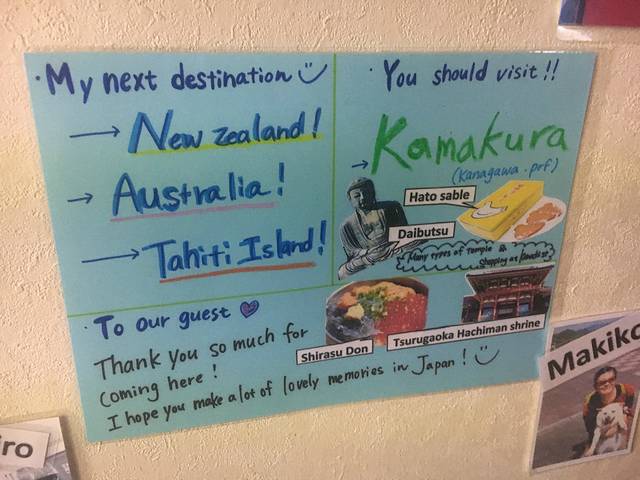 · My next destination
→ New zealand!
→ Australia!
→ Tahiti Island!
· You should visit!!
→ Kamakura
(Kanagawa.prf)
Hato sable
Daibutsu
Many types of temple &
Shopping at
· To our guest
Thank you so much for
coming here!
I hope you make a lot of lovely memories in Japan!
Shirasu Don
Tsurugaoka Hachiman shrine
Makiko
ro